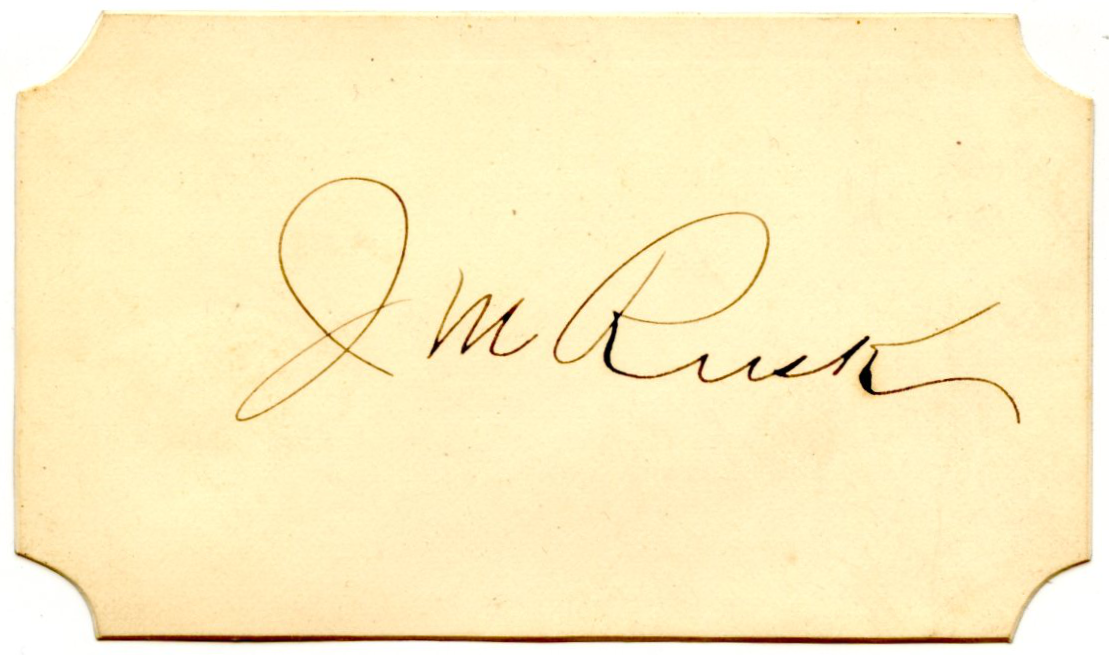 J M Rusk